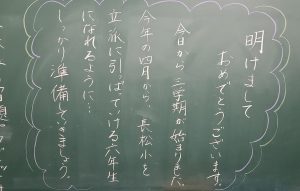 明けまして
おめでとうございます。
今日から三学期が始まりました。
今年の四月から、長松小を
立派に引っぱっていける六年生
になれるように…
しっかり準備していきましょう。